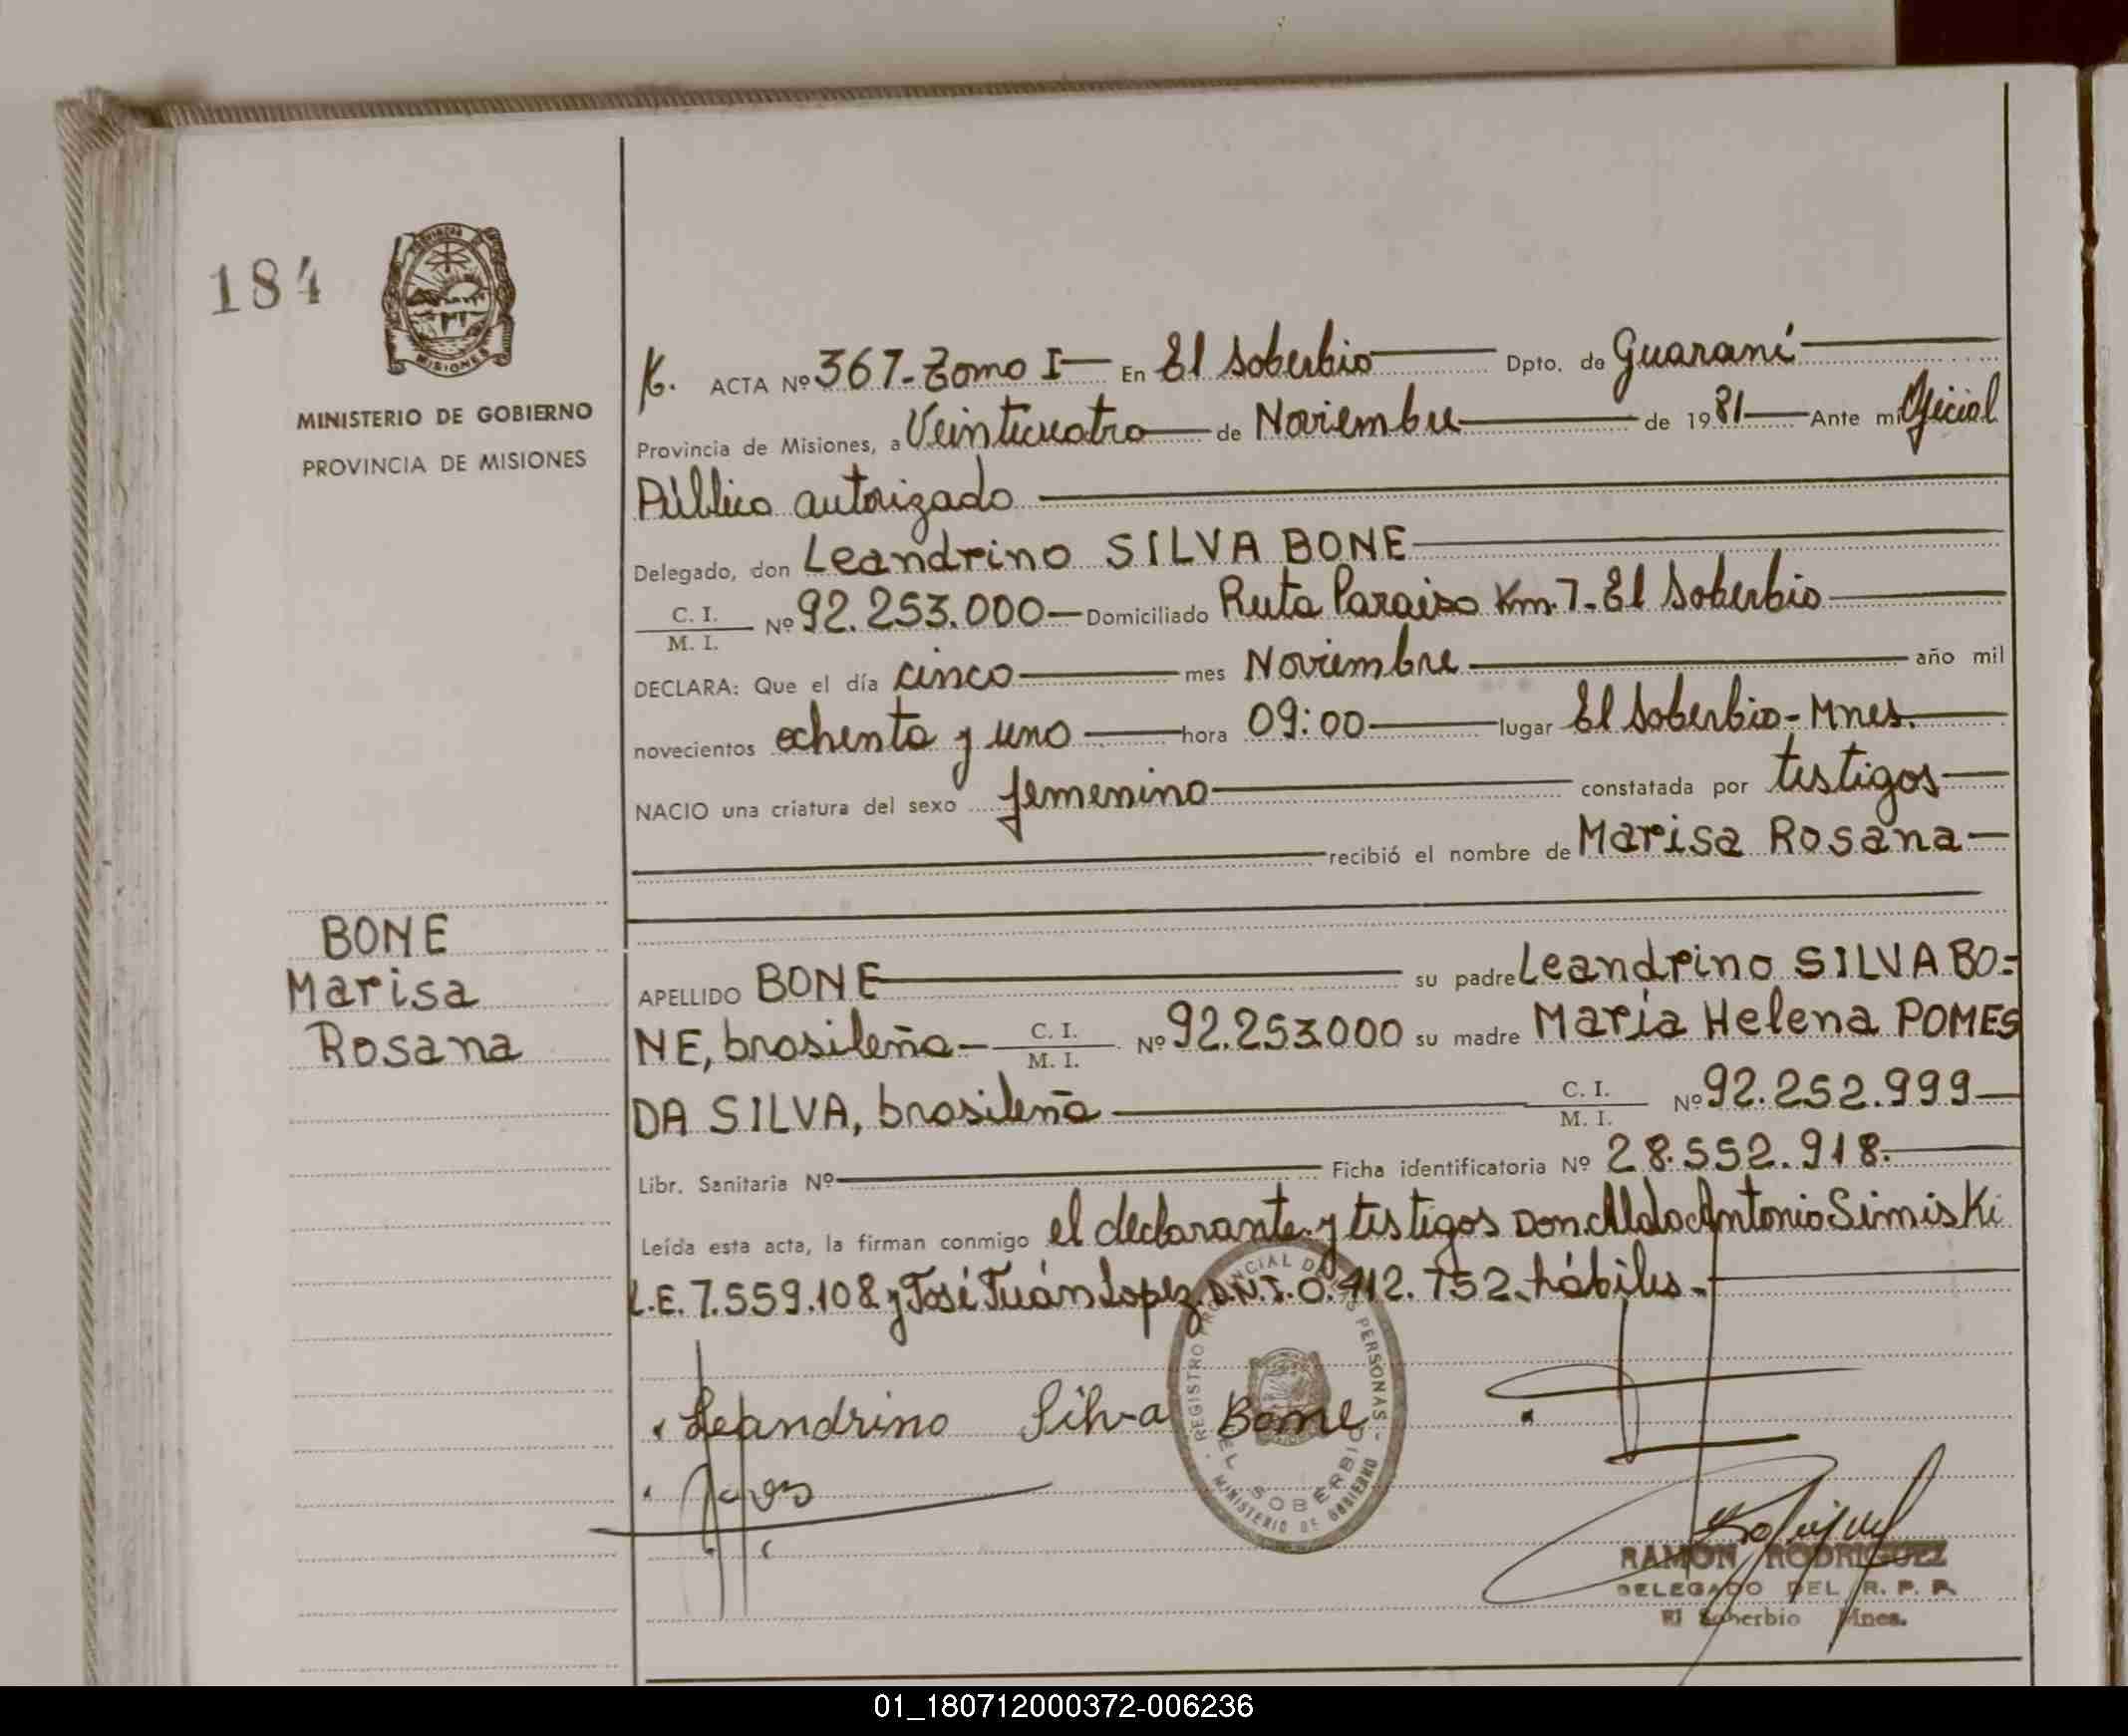 184
PROVINCIA DE
MISIONES
MINISTERIO DE GOBIERNO
PROVINCIA DE MISIONES
K. ACTA Nº 367-Tomo I En El Soberbio Dpto. de Guaraní
Provincia de Misiones, a Veinticuatro de Noviembre de 1981 Ante mi Oficial
Público autorizado
Delegado, don Leandrino SILVA BONE
C. I. / M. I. Nº 92.253.000 Domiciliado Ruta Paraiso Km. 7-El Soberbio
DECLARA: Que el día cinco mes Noviembre año mil
novecientos ochenta y uno hora 09:00 lugar El Soberbio-Mnes.
NACIO una criatura del sexo femenino constatada por testigos
recibió el nombre de Marisa Rosana
BONE
Marisa
Rosana
APELLIDO BONE su padre Leandrino SILVA BO=
NE, brasileña C. I. / M. I. Nº 92.253.000 su madre María Helena POMES
DA SILVA, brasileña C. I. / M. I. Nº 92.252.999
Libr. Sanitaria Nº Ficha identificatoria Nº 28.552.918.
Leída esta acta, la firman conmigo el declarante y testigos Don Aldo Antonio Simiski
L.E. 7.559.108 y José Juán Lopez D.N.I. 0.412.752 hábiles.
Leandrino Silva Bone
REGISTRO PROVINCIAL DE LAS PERSONAS
EL SOBERBIO
MINISTERIO DE GOBIERNO
RAMON RODRIGUEZ
DELEGADO DEL R. P. P.
El Soberbio Mnes.
01_180712000372-006236